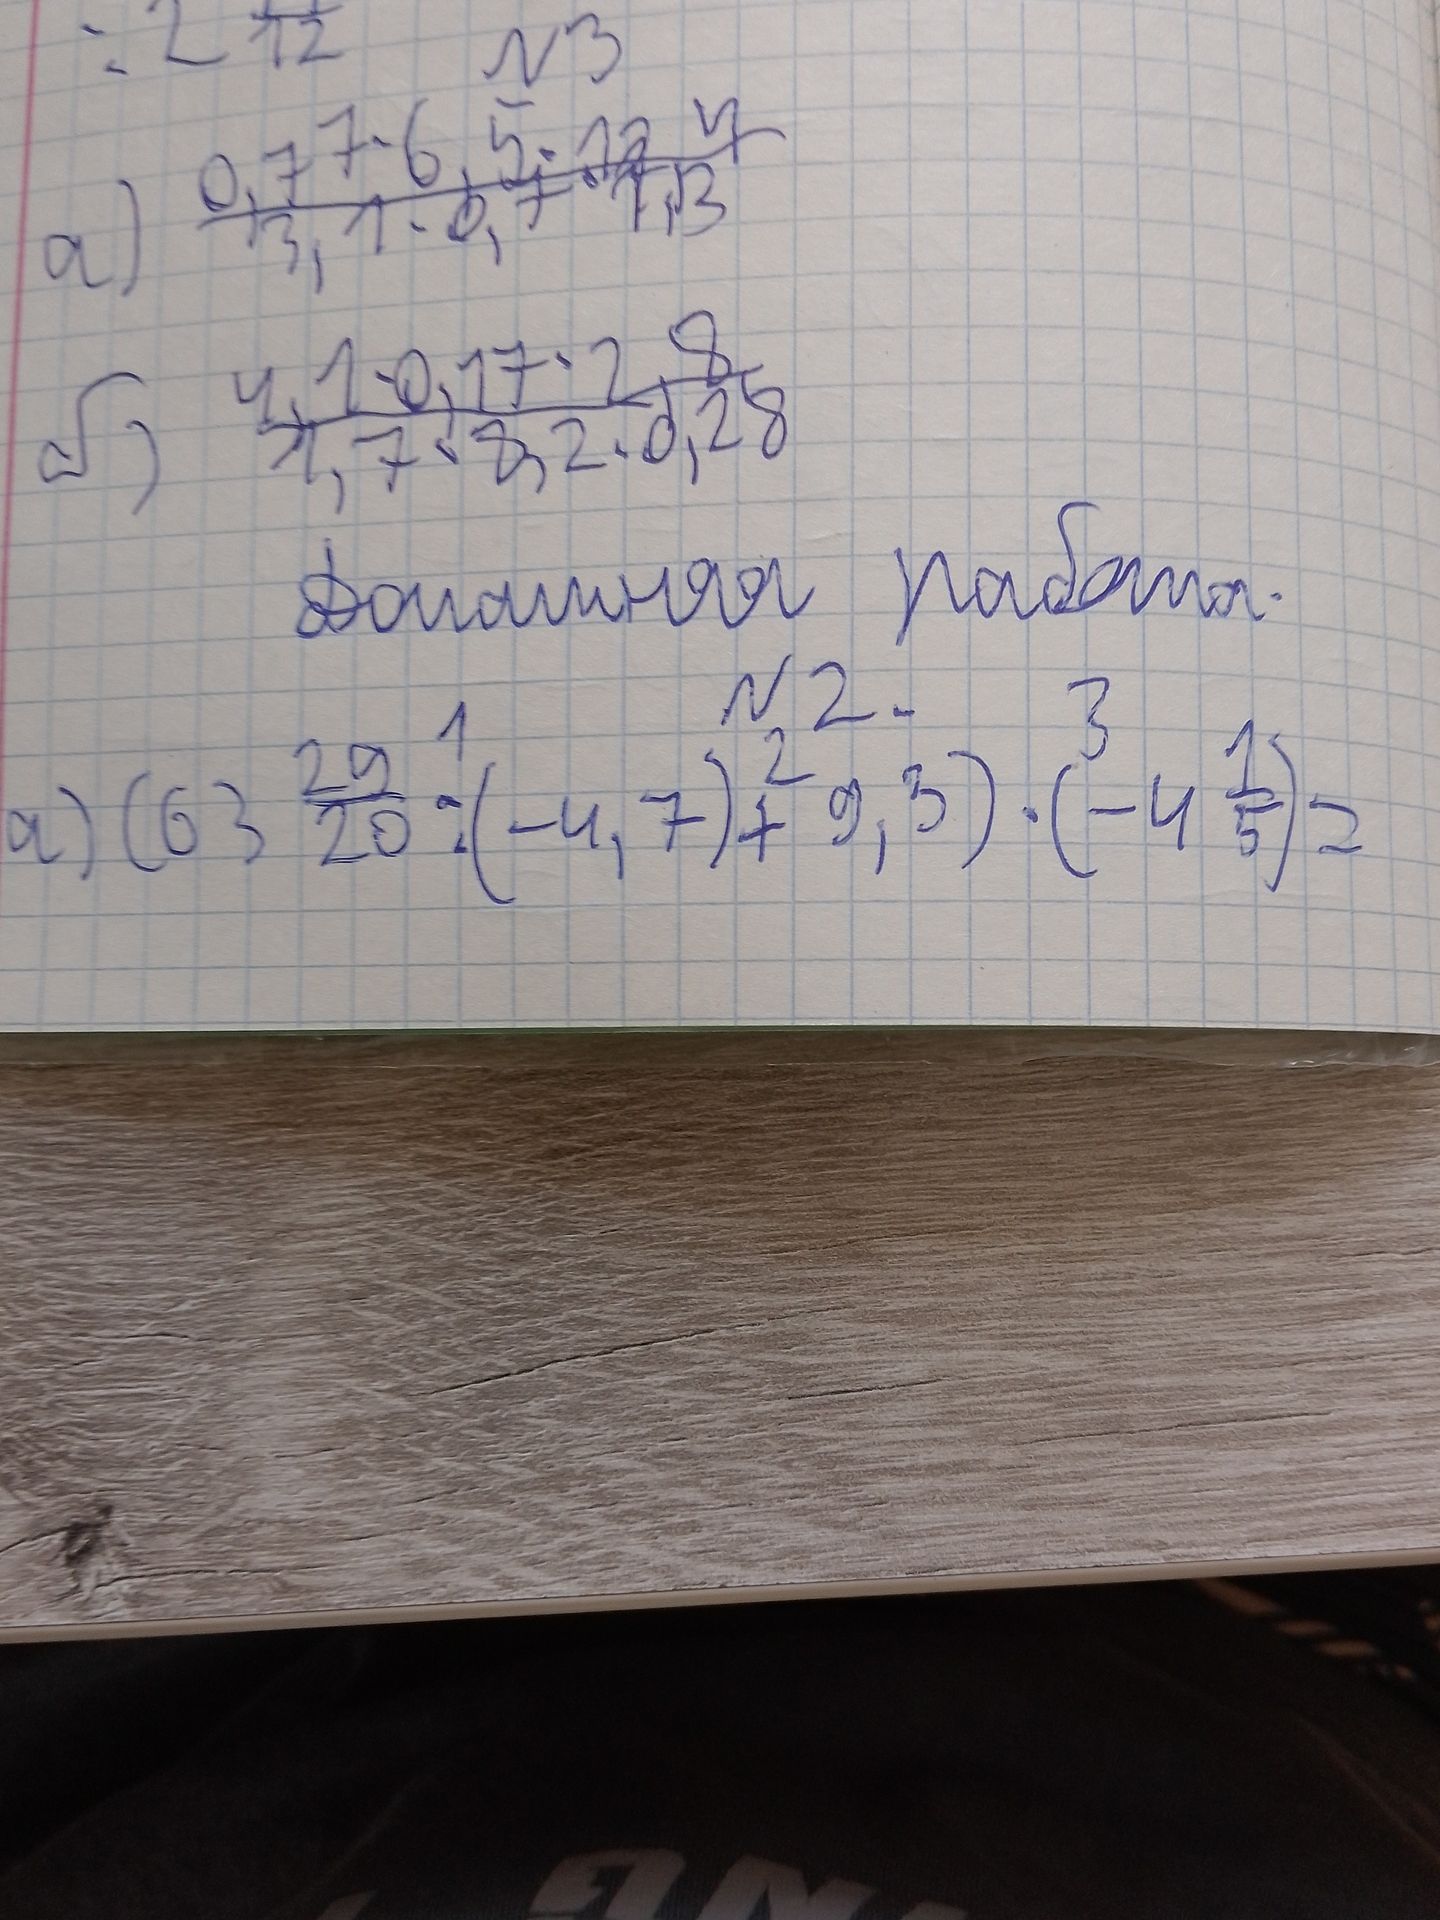 N3
а) 0,77·6,5·12,4
3,1·0,7·1,3
б) 4,1·0,17·2,8
1,7·8,2·0,28
Домашняя работа.
N2.
1 2 3
а) (63 29/20 : (-4,7) + 9,3) · (-4 1/5) =